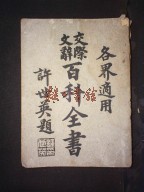 各界適用
交際文辭
百科全書
許世英題